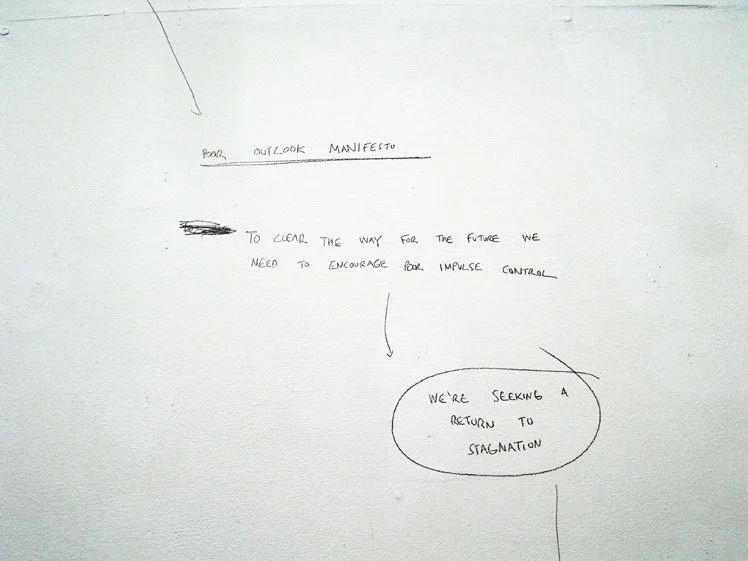 POOR OUTLOOK MANIFESTO
TO CLEAR THE WAY FOR THE FUTURE WE
NEED TO ENCOURAGE POOR IMPULSE CONTROL
WE'RE SEEKING A
RETURN TO
STAGNATION